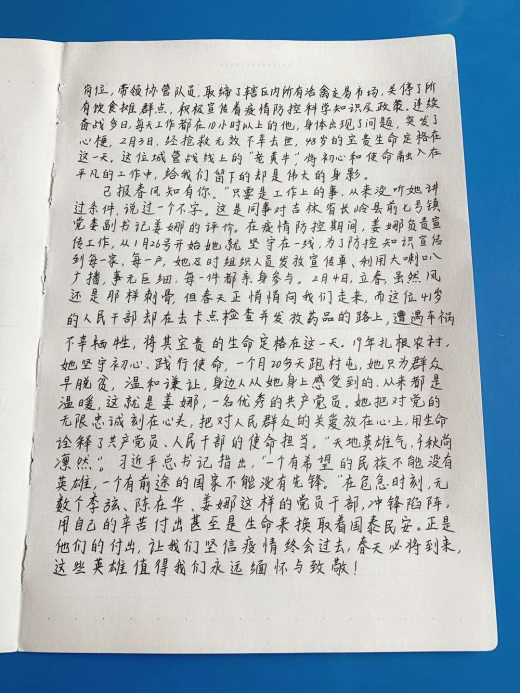 岗位，带领协管队员，取缔了辖区内所有活禽交易市场，关停了所
有饮食摊群点，积极宣传着疫情防控科学知识及政策。连续
奋战多日，每天工作都在10小时以上的他，身体出现了问题，突发了
心梗，2月3日，经抢救无效不幸去世，48岁的宝贵生命定格在
这一天。这位城管战线上的“老黄牛”，将初心和使命融入在
平凡的工作中，给我们留下的却是伟大的身影。
己报春风知有你。“只要是工作上的事，从来没听她讲
过条件，说过一个不字。这是同事对吉林省长岭县前七号镇
党委副书记姜娜的评价。在疫情防控期间，姜娜负责宣
传工作，从1月26号开始她就坚守在一线，为了防控知识宣传
到每一家、每一户，她及时组织人员发放宣传单、利用大喇叭
广播，事无巨细，每一件都亲身参与。2月4日，立春，虽然风
还是那样刺骨，但春天正悄悄向我们走来，而这位41岁
的人民干部却在去卡点检查并发放药品的路上，遭遇车祸
不幸牺牲，将其宝贵的生命定格在这一天。19年扎根农村，
她坚守初心、践行使命，一个月20多天跑村屯，她只为群众
早脱贫，温和谦让，身边人从她身上感受到的，从来都是
温暖，这就是姜娜，一名优秀的共产党员。她把对党的
无限忠诚刻在心头，把对人民群众的关爱放在心上，用生命
诠释了共产党员、人民干部的使命担当。“天地英雄气，千秋尚
凛然”。习近平总书记指出，“一个有希望的民族不能没有
英雄，一个有前途的国家不能没有先锋。”在危急时刻，无
数个李弦、陈在华、姜娜这样的党员干部，冲锋陷阵，
用自己的辛苦付出甚至是生命来换取着国泰民安。正是
他们的付出，让我们坚信疫情终会过去，春天必将到来，
这些英雄值得我们永远缅怀与致敬！